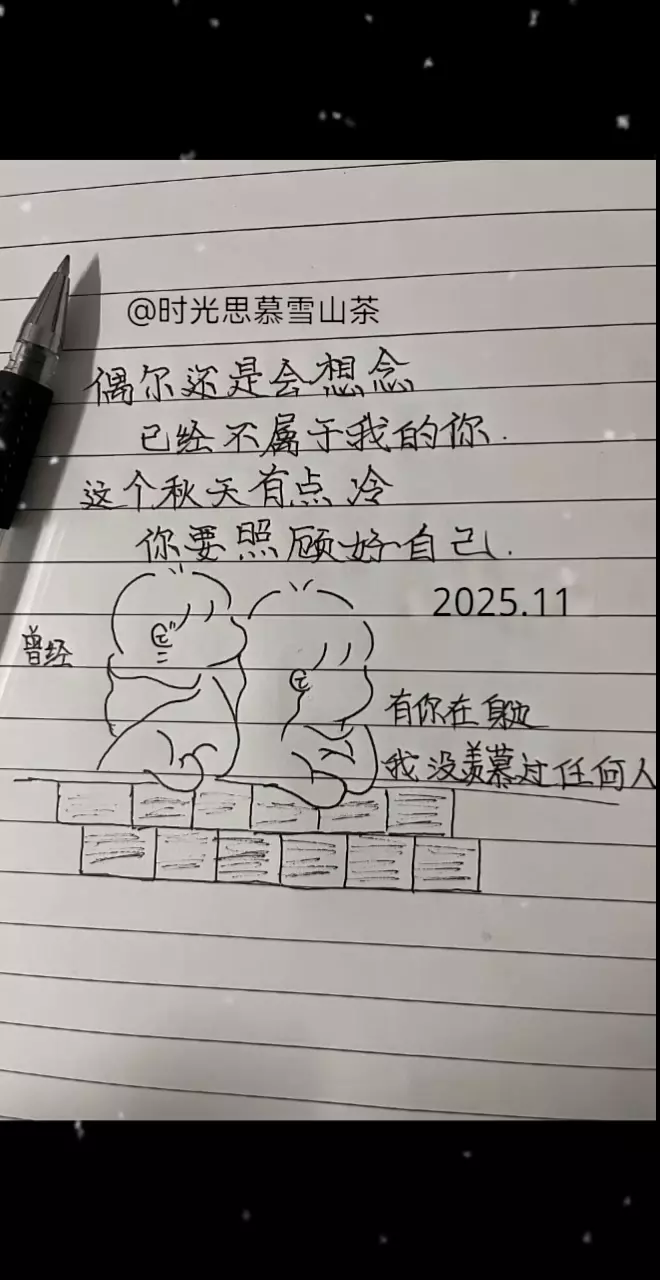 @时光思慕雪山茶
偶尔还是会想念
已经不属于我的你.
这个秋天有点冷
你要照顾好自己.
2025.11
曾经
有你在身边
我没羡慕过任何人